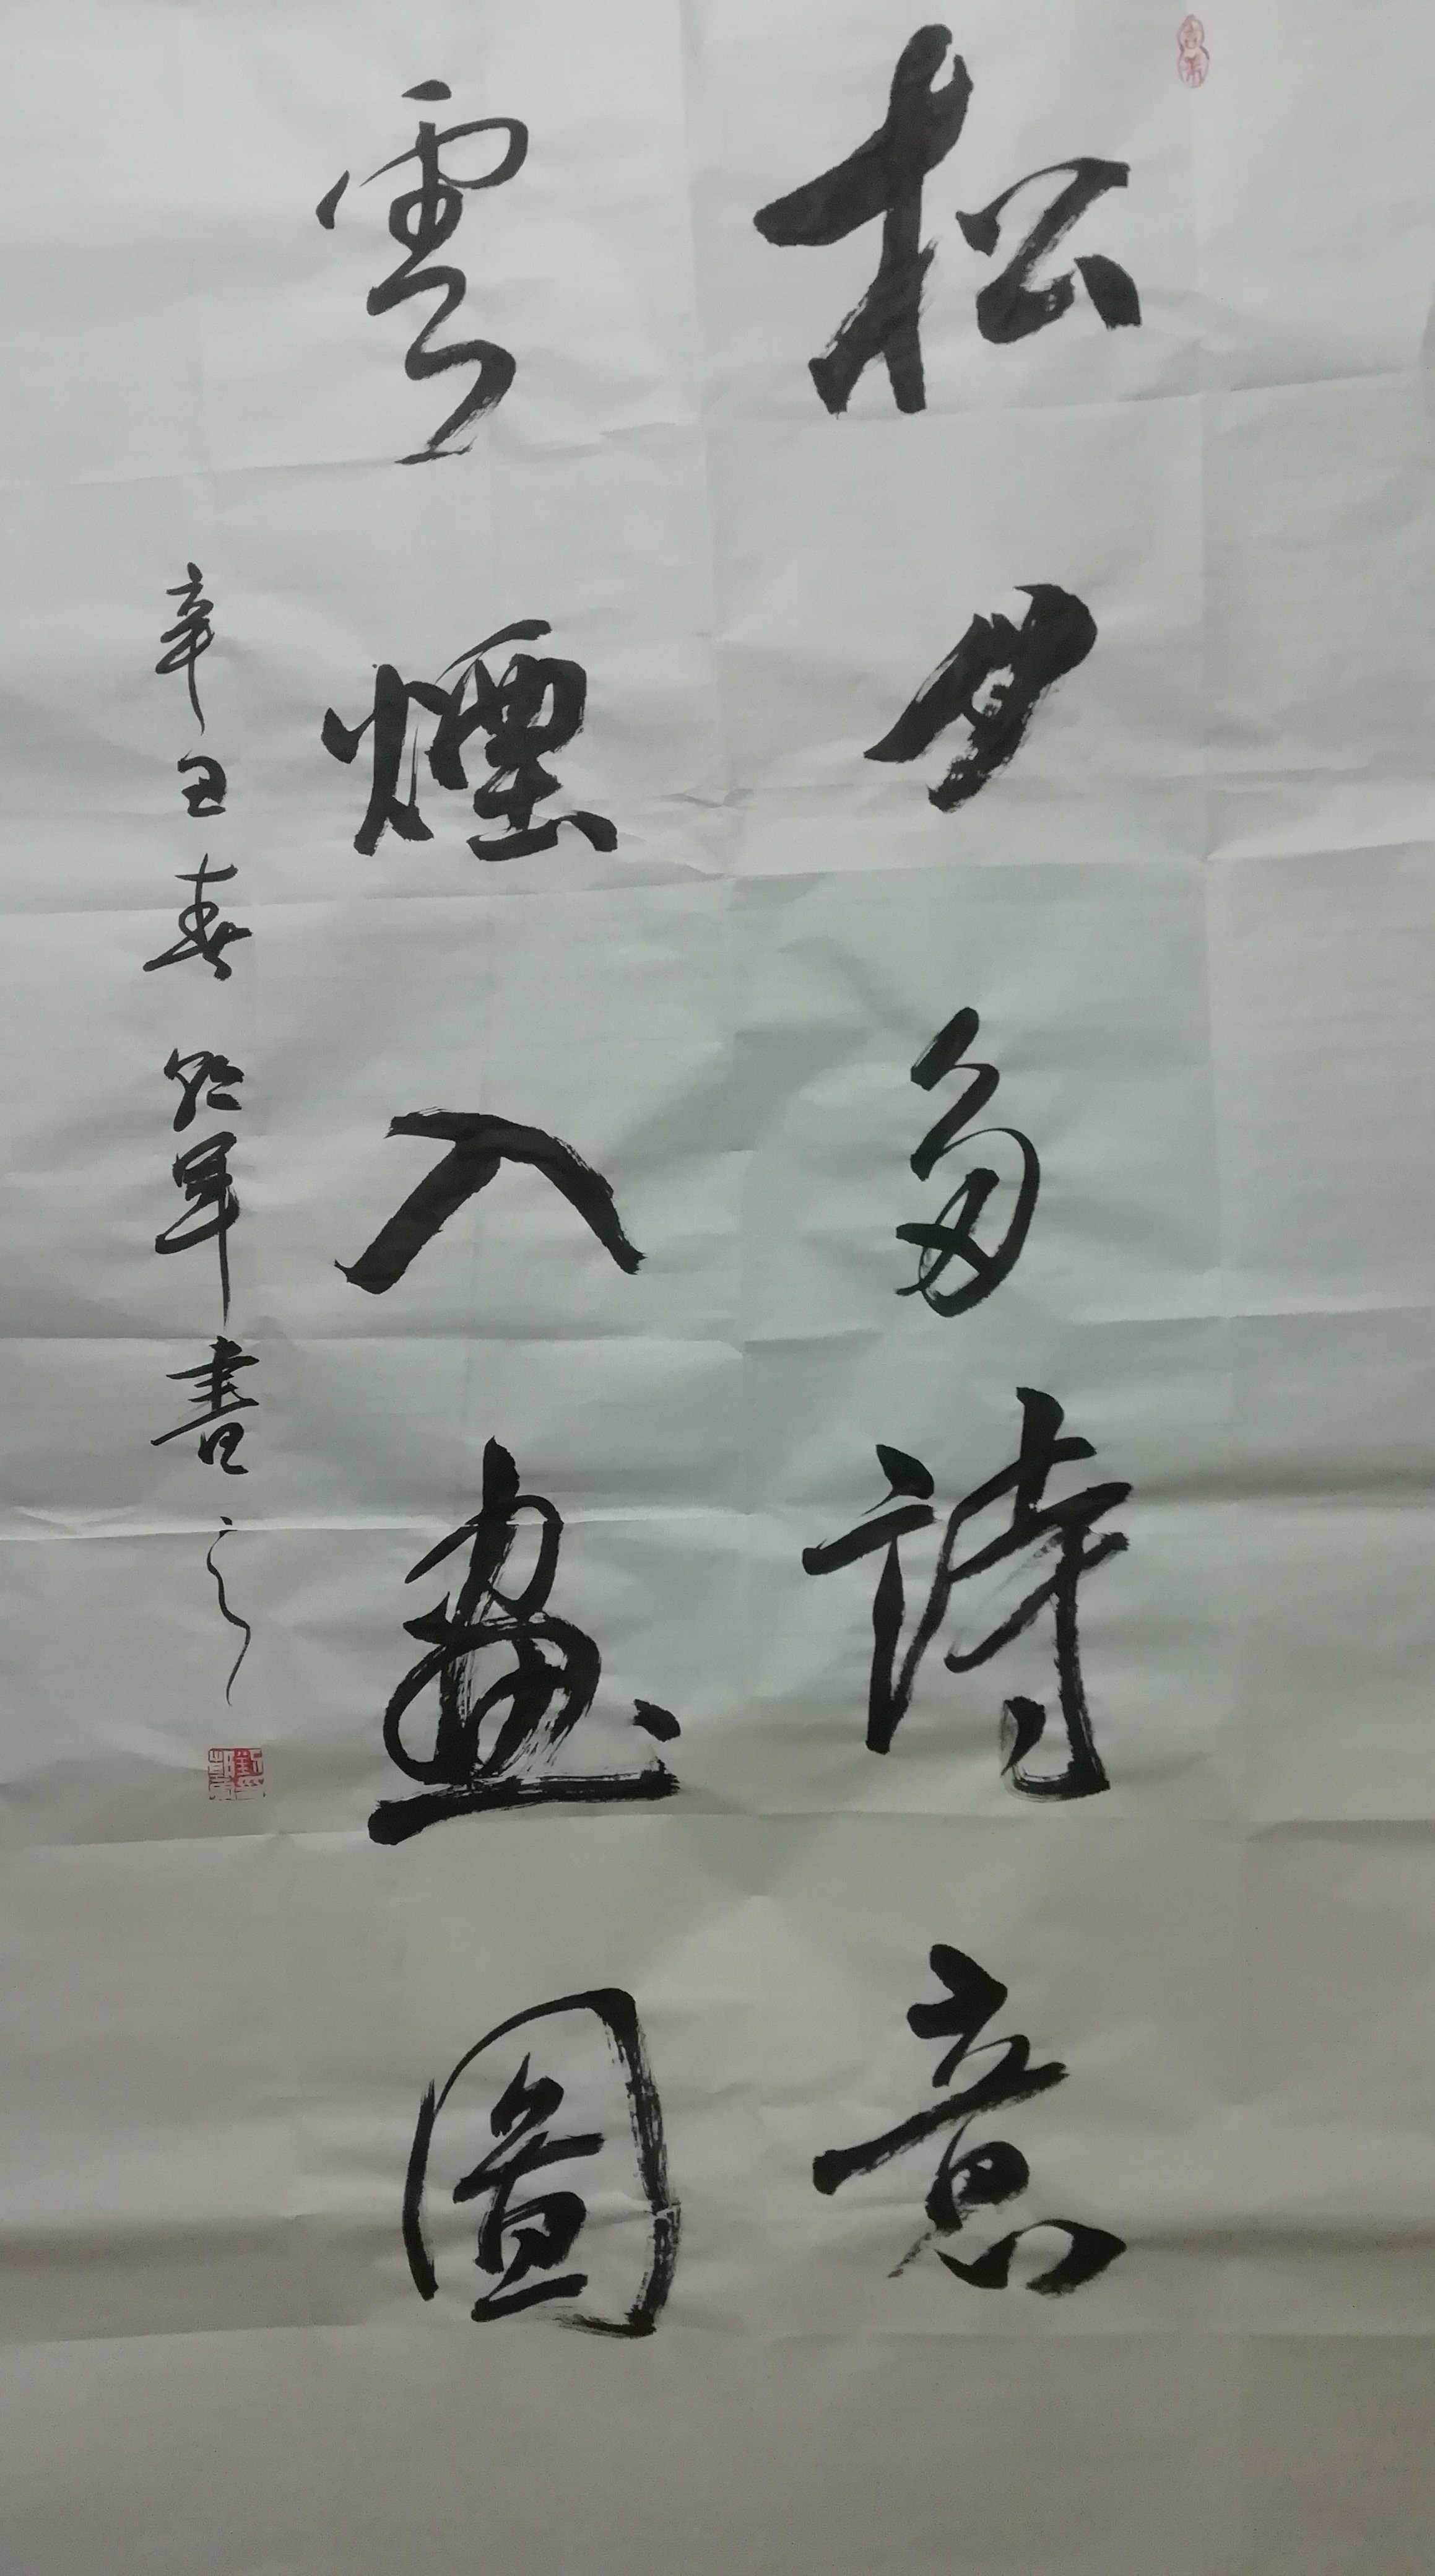 松月多詩意
雲煙入画圖
辛丑春 軍書之